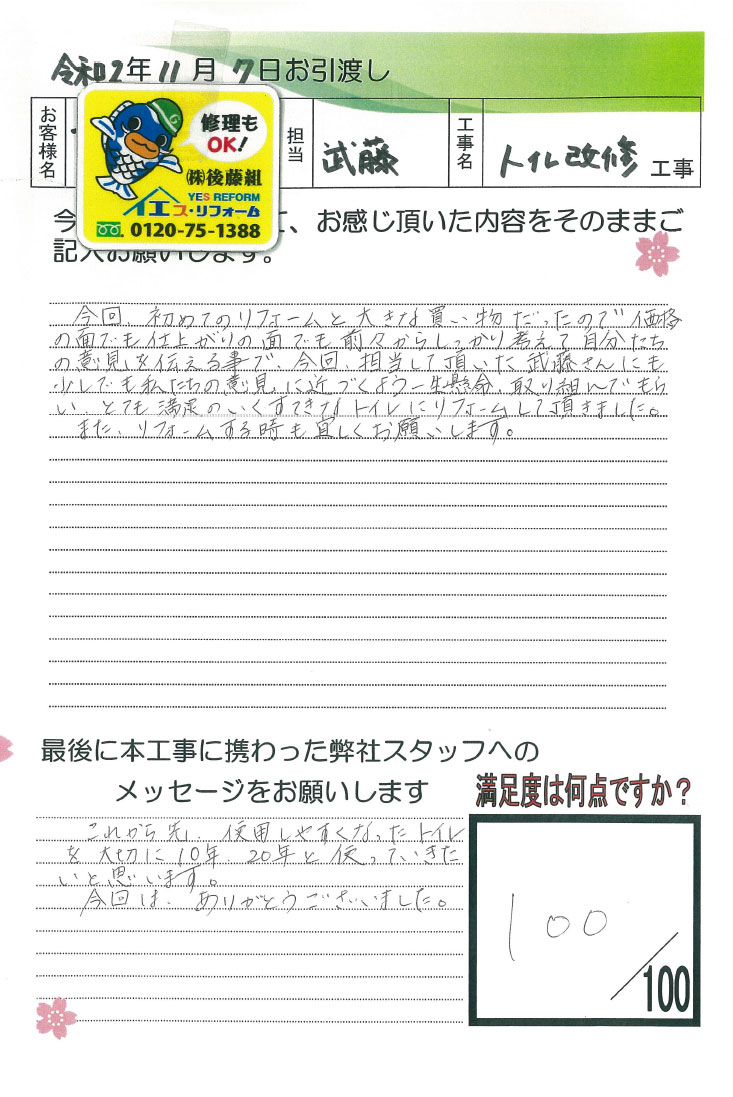 令和2年11月7日お引渡し
お客様名
担当
武藤
工事名
トイレ改修 工事
修理もOK!
㈱後藤組
YES REFORM
イエス・リフォーム
0120-75-1388
今
、お感じ頂いた内容をそのままご
記入お願いします。
今回、初めてのリフォームと大きな買い物だったので価格
の面でも仕上がりの面でも前々からしっかり考えて自分たち
の意見を伝える事で、今回、担当して頂いた武藤さんにも
少しでも私たちの意見に近づくよう一生懸命、取り組んでもら
い、とても満足のいくすてきなトイレにリフォームして頂きました。
また、リフォームする時も宜しくお願いします。
最後に本工事に携わった弊社スタッフへの
メッセージをお願いします
満足度は何点ですか？
これから先、使用しやすくなったトイレ
を大切に10年、20年と使っていきた
いと思います。
今回は、ありがとうございました。
100
/100